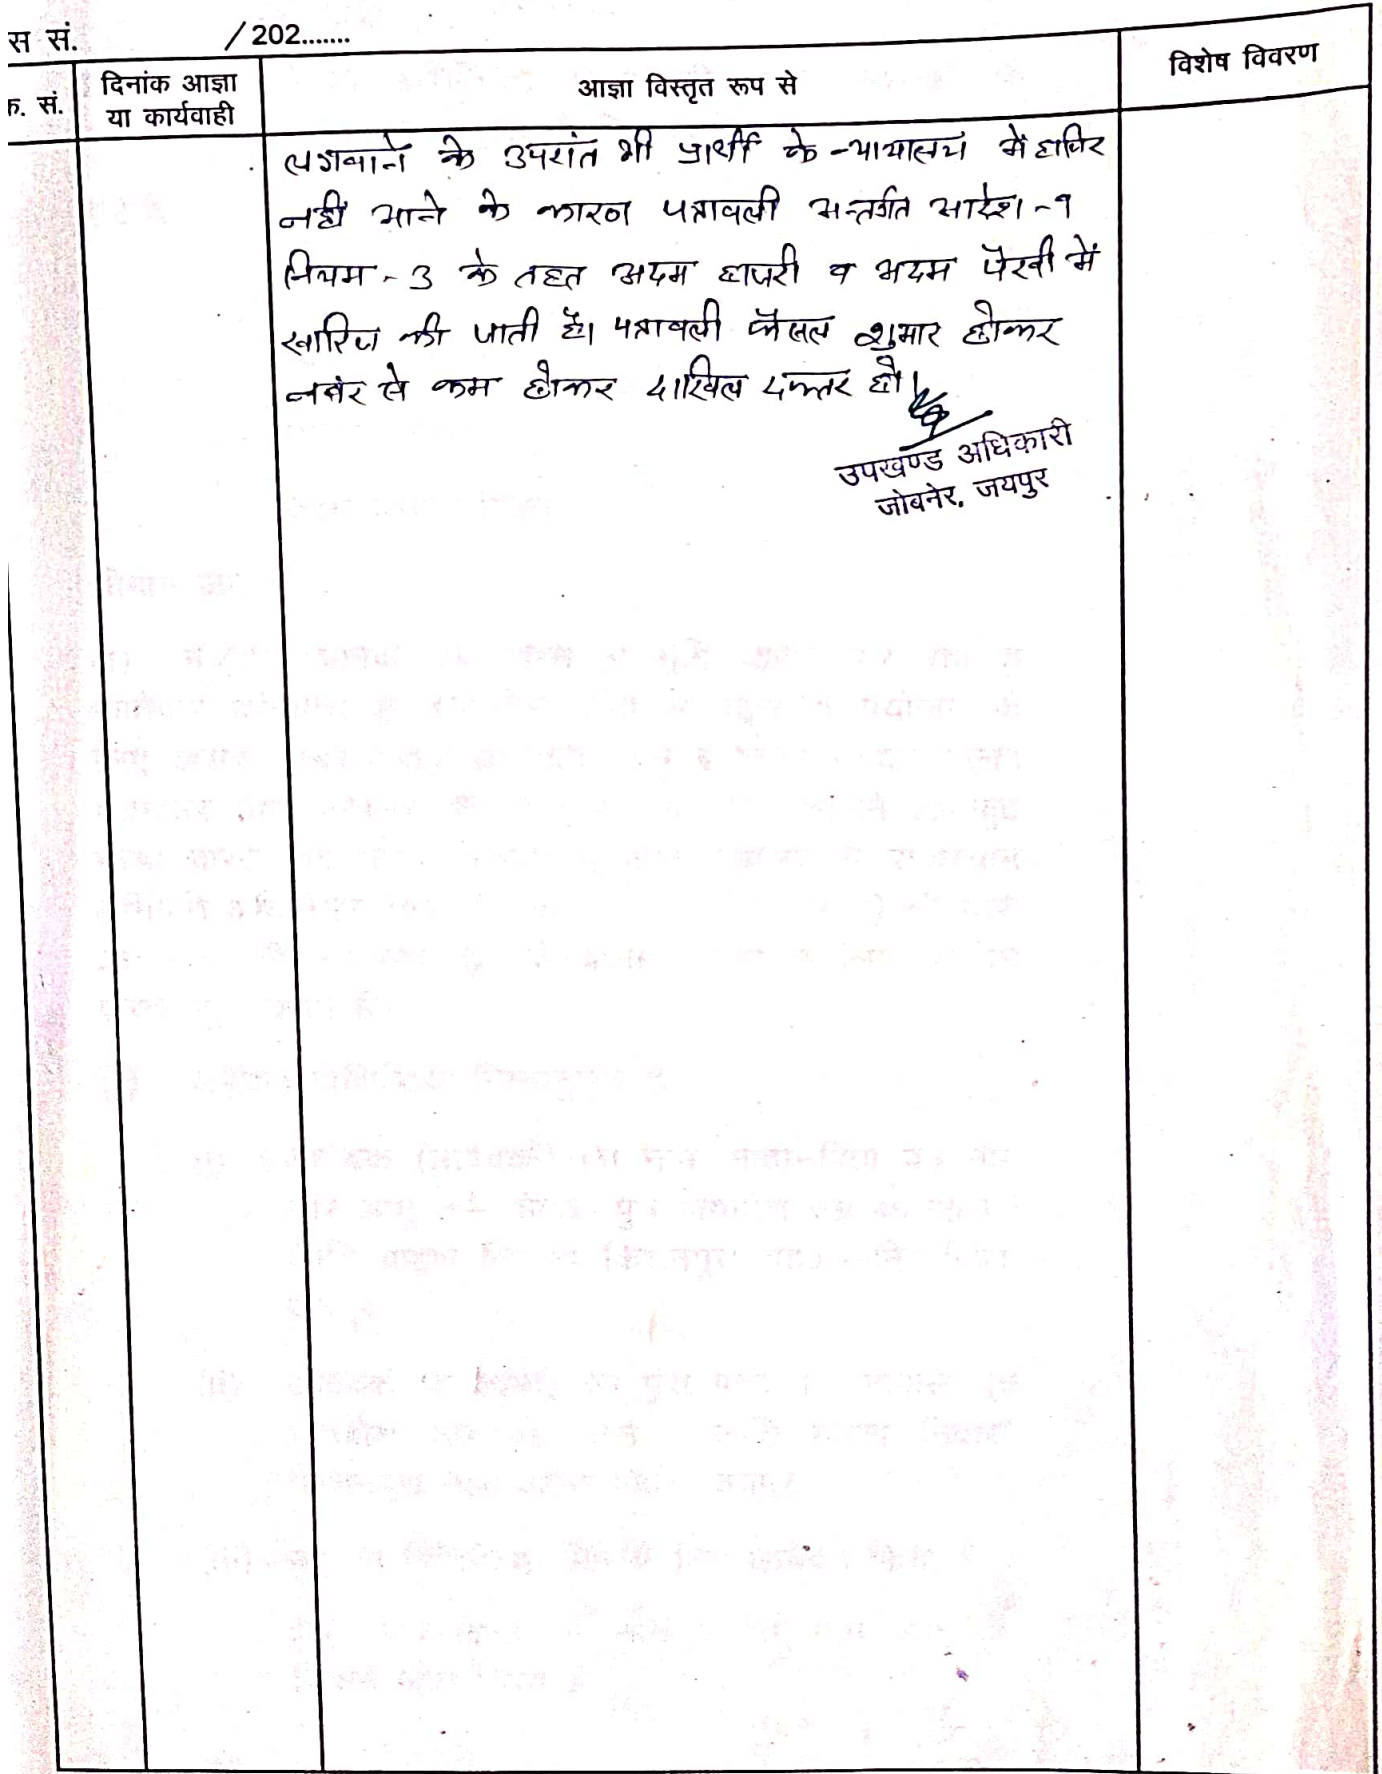 स सं. /202.......
क. सं.
दिनांक आज्ञा
या कार्यवाही
आज्ञा विस्तृत रूप से
विशेष विवरण
लगवाने के उपरांत भी प्रार्थी के न्यायालय में हाजिर
नहीं आने के कारण पत्रावली अन्तर्गत आदेश-9
नियम-3 के तहत अदम हाजरी व अदम पैरवी में
खारिज की जाती है। पत्रावली फैसल शुमार होकर
नबंर से कम होकर दाखिल दफ्तर हो।
उपखण्ड अधिकारी
जोबनेर, जयपुर